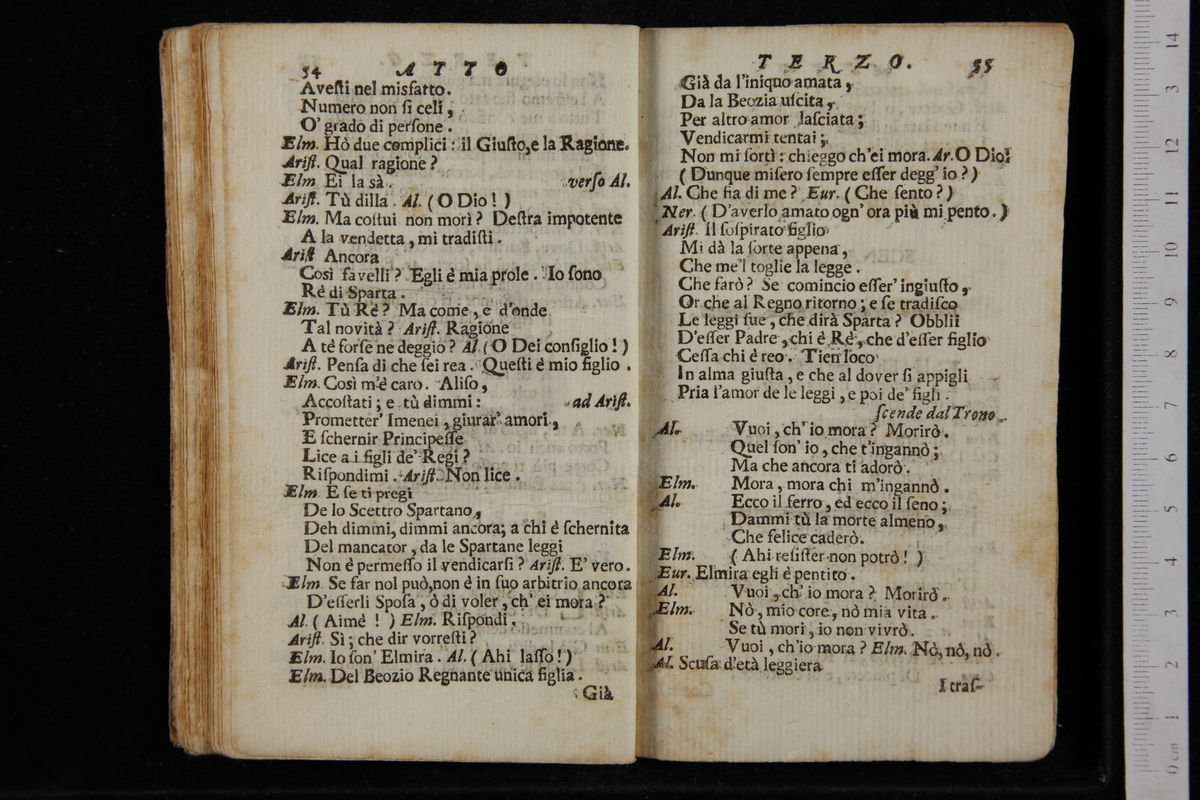 54 ATTO
Avesti nel misfatto.
Numero non si celi,
O' grado di persone.
Elm. Hò due complici: il Giusto, e la Ragione.
Arist. Qual ragione?
Elm. Ei la sà. verso Al.
Arist. Tù dilla. Al. (O Dio!)
Elm. Ma costui non morì? Destra impotente
A la vendetta, mi tradisti.
Arist Ancora
Così favelli? Egli è mia prole. Io sono
Rè di Sparta.
Elm. Tù Rè? Ma come, e d'onde
Tal novità? Arist. Ragione
A tè forse ne deggio? Al (O Dei consiglio!)
Arist. Pensa di che sei rea. Questi è mio figlio.
Elm. Così m'è caro. Aliso,
Accostati; e tù dimmi: ad Arist.
Prometter' Imenei, giurar' amori,
E schernir Principesse
Lice a i figli de' Regi?
Rispondimi. Arist. Non lice.
Elm. E se ti pregi
De lo Scettro Spartano,
Deh dimmi, dimmi ancora; a chi è schernita
Del mancator, da le Spartane leggi
Non è permesso il vendicarsi? Arist. E' vero.
Elm. Se far nol può, non è in suo arbitrio ancora
D'esserli Sposa, ò di voler, ch' ei mora?
Al. (Aimè!) Elm. Rispondi.
Arist. Sì; che dir vorresti?
Elm. Io son' Elmira. Al. (Ahi lasso!)
Elm. Del Beozio Regnante unica figlia.
Già
TERZO. 55
Già da l'iniquo amata,
Da la Beozia uscita,
Per altro amor lasciata;
Vendicarmi tentai;
Non mi sortì: chieggo ch'ei mora. Ar. O Dio!
(Dunque misero sempre esser degg' io?)
Al. Che fia di me? Eur. (Che sento?)
Ner. (D'averlo amato ogn' ora più mi pento.)
Arist. Il sospirato figlio
Mi dà la sorte appena,
Che me'l toglie la legge.
Che farò? Se comincio esser' ingiusto,
Or che al Regno ritorno; e se tradisco
Le leggi sue, che dirà Sparta? Obblii
D'esser Padre, chi è Rè, che d'esser figlio
Cessa chi è reo. Tien loco
In alma giusta, e che al dover si appigli
Pria l'amor de le leggi, e poi de' figli.
scende dal Trono.
Al. Vuoi, ch' io mora? Morirò.
Quel son' io, che t'ingannò;
Ma che ancora ti adorò.
Elm. Mora, mora chi m'ingannò.
Al. Ecco il ferro, ed ecco il seno;
Dammi tù la morte almeno,
Che felice caderò.
Elm. (Ahi resister non potrò!)
Eur. Elmira egli è pentito.
Al. Vuoi, ch' io mora? Morirò.
Elm. Nò, mio core, nò mia vita.
Se tù mori, io non vivrò.
Al. Vuoi, ch'io mora? Elm. Nò, nò, nò.
Al. Scusa d'età leggiera
I tras-
0 cm 1 2 3 4 5 6 7 8 9 10 11 12 13 14